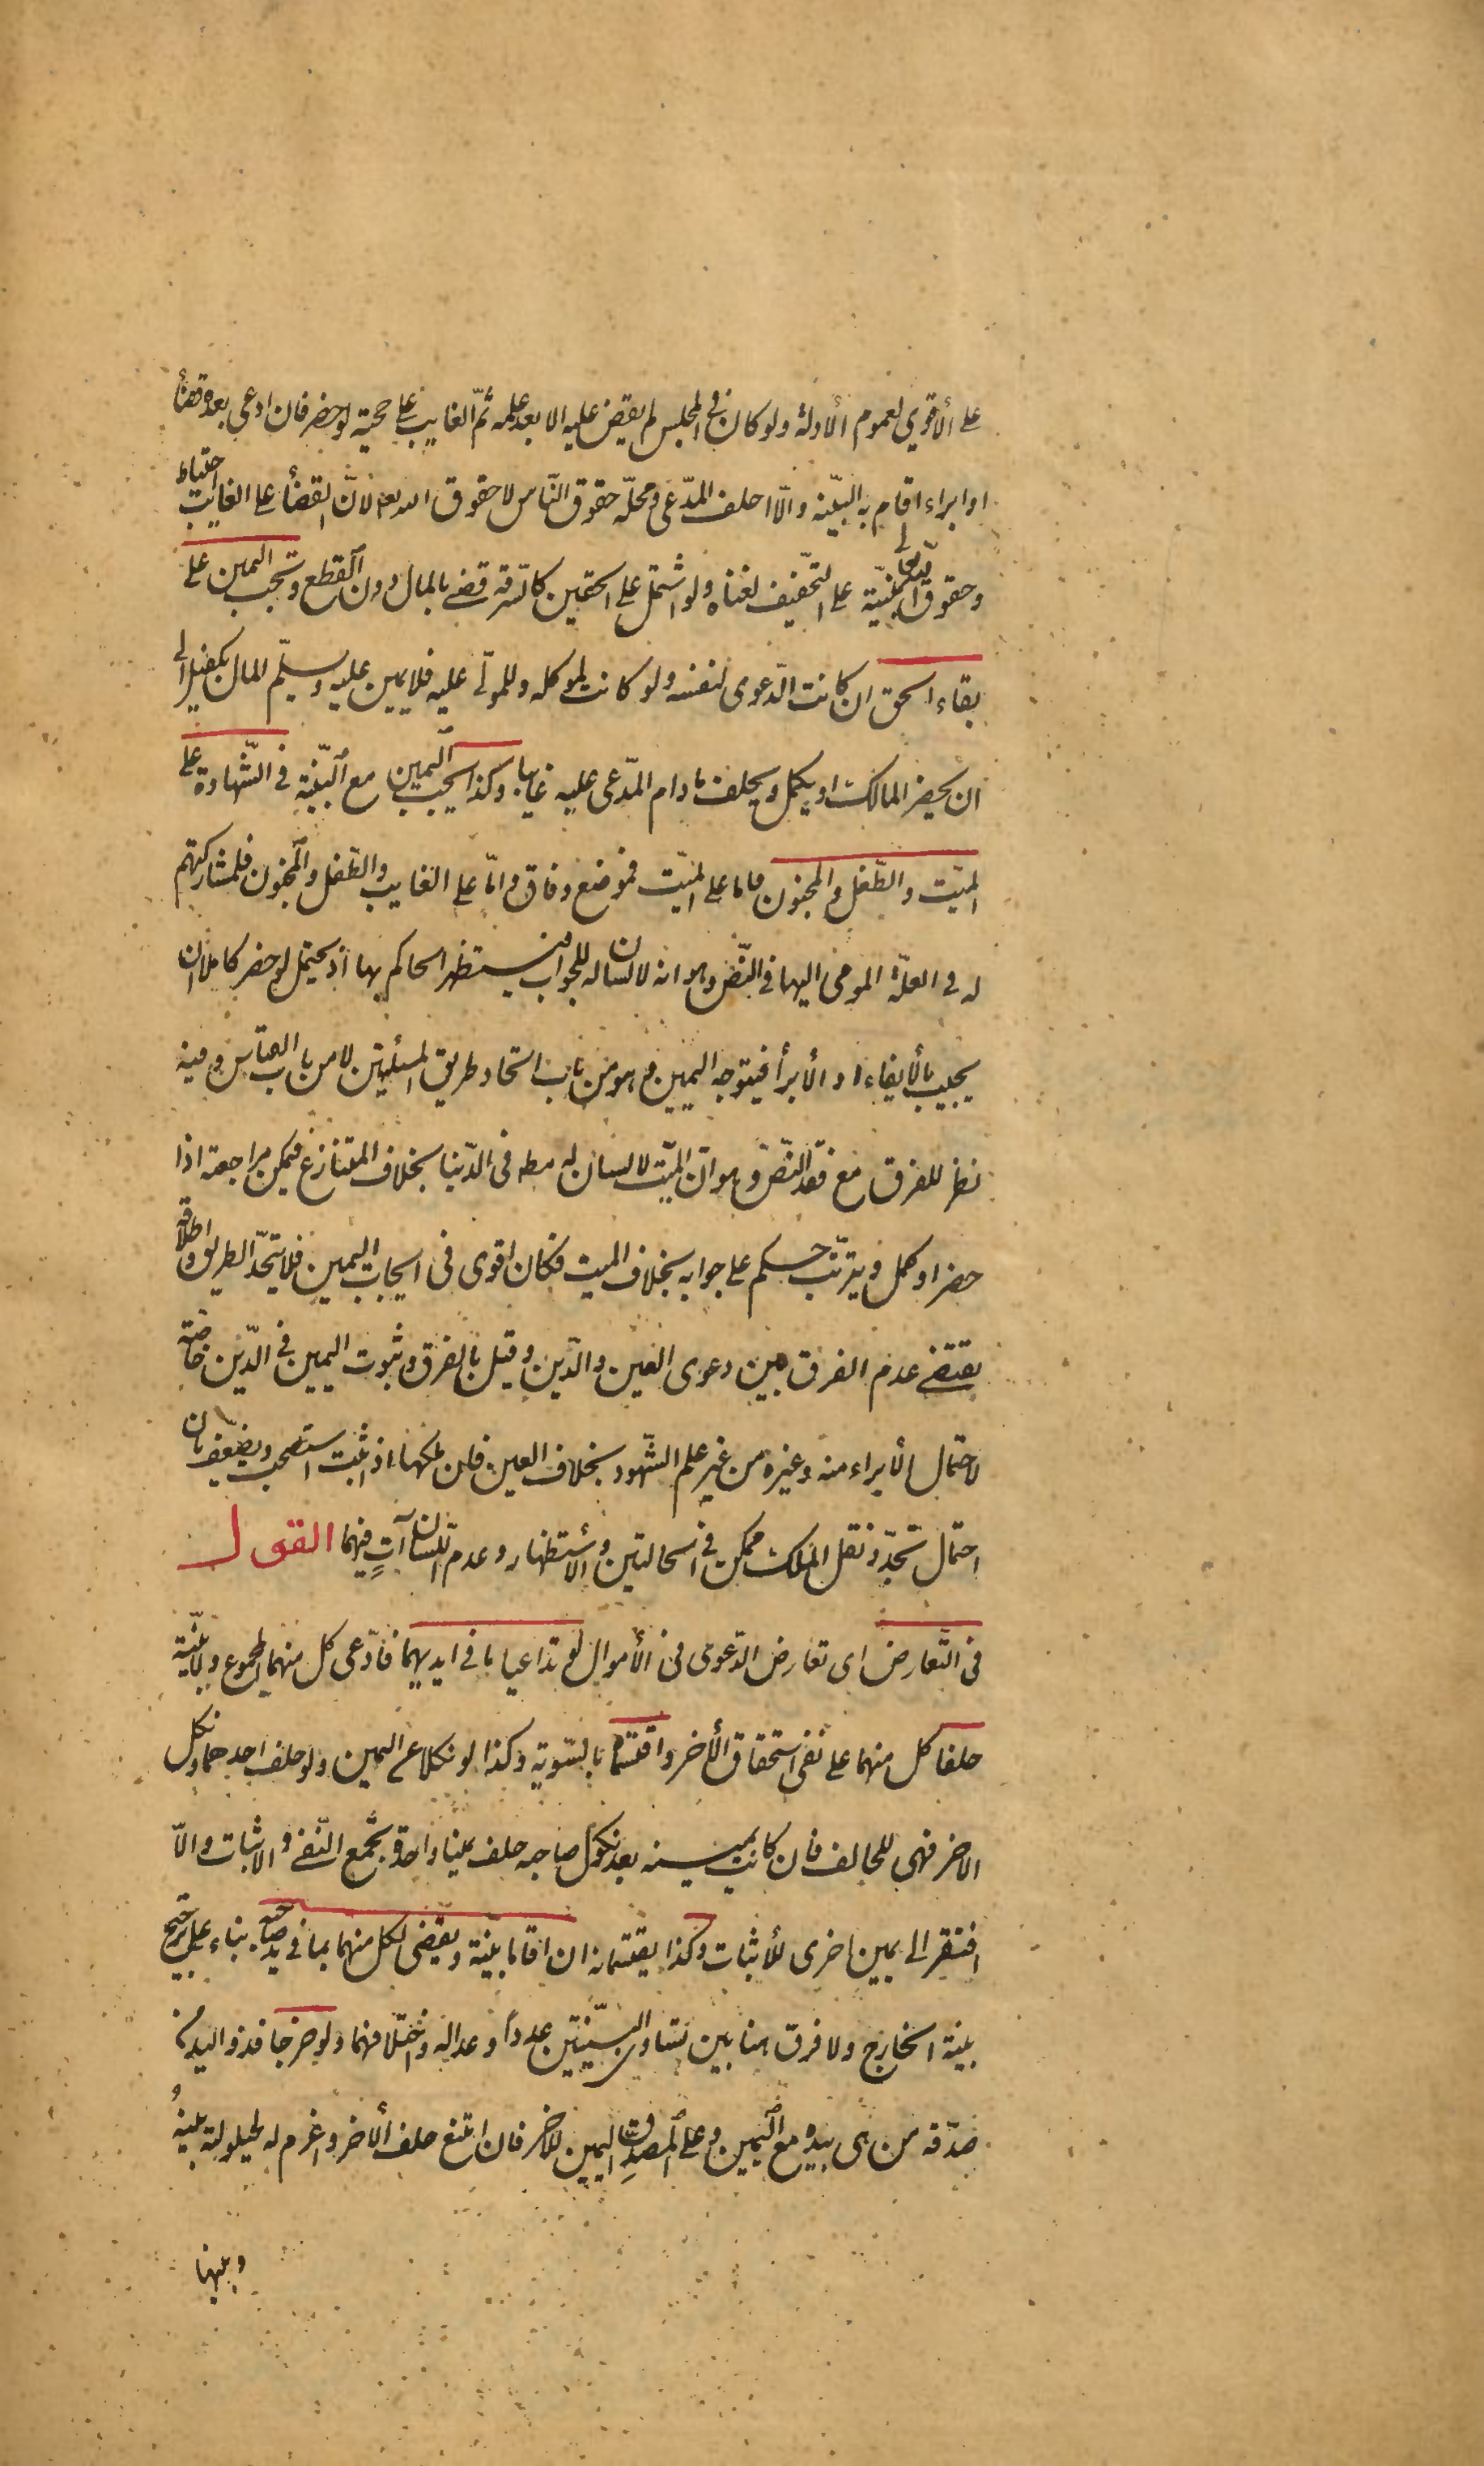 على الأقوي لعموم الأدلة ولو كان في المجلس لم يقض عليه الا بعد علمه ثمّ الغايب على حجته لو حضر فان ادعى بعده قضأ
او ابراء اقام به البيّنة والّا احلف المدّعى ومحلّه حقوق النّاس لا حقوق الله تعه لانّ القضأ على الغايب احتياط
وحقوق الله تعالى مبنيّة على التخفيف لغناه ولو اشتمل على الحقين كالسّرقة قضى بالمال دون القطع وتجب اليمين على
بقاء الحق ان كانت الدّعوى لنفسه ولو كانت لموكله وللمولّى عليه فلا يمين عليه ويسلّم المال بكفيل الى
ان يحضر المالك او يكمل ويحلف ما دام المدّعى عليه غايبا وكذا يجب اليمين مع البيّنة في الشّهادة على
الميّت والطّفل والمجنون اما على الميّت فموضع وفاق وامّا على الغايب والطّفل والمجنون فلمشاركتهم
له في العلّة المومى اليها في النّص وهو انه لا لسان له للجواب فيستظهر الحاكم بها اذ يحتمل لو حضر كاملا ان
يجيب بالأيفاء او الأبرأ فيتوجه اليمين وهو من باب اتحاد طريق المسئلتين لا من باب القياس وفيه
نظر للفرق مع فقد النّصّ وهو انّ الميّت لا لسان له مطه في الدّنيا بخلاف المتنازع فيمكن مراجعته اذا
حضر او كمل ويترتّب حكم على جوابه بخلاف الميت فكان اقوى في ايجاب اليمين فلا يتحّد الطريق واطلاقه
يقتضى عدم الفرق بين دعوى العين والدّين وقيل بالفرق وثبوت اليمين في الدّين خاصّة
لاحتمال الأبراء منه وغيره من غير علم الشّهود بخلاف العين فان ملكها اذ اثبت استصحب ويضعّف بان
احتمال تجدّد نقل الملك ممكن في الحالتين والأستظهار وعدم اللسان آتٍ فيهما القول
في التّعارض اى تعارض الدّعوى في الأموال لو تداعيا ما في ايديهما فادّعى كل منهما المجموع ولا بيّنة
حلفا كل منهما على نفى استحقاق الأخر واقتسماه بالسّوية وكذا لو نكلا عن اليمين ولو حلف احدهما ونكل
الاخر فهى للحالف فان كانت يمينه بعد نكول صاحبه حلف يمينا واحدة تجمع النّفى والاثبات والّا
افتقر الى يمين اخرى للأثبات وكذا يقتسمانه ان اقاما بيّنة ويقضى لكل منهما بما في يد صاحبه بناء على ترجيح
بيّنة الخارج ولا فرق هنا بين تساوى البيّنتين عدداً وعدالة واختلافهما ولو خرجا فذو اليد من
صدّقه من هى بيده مع اليمين وعلى المصدِّق اليمين للاخر فان امتنع حلف الأخر واغرم له لحيلولته بينه
وبينها